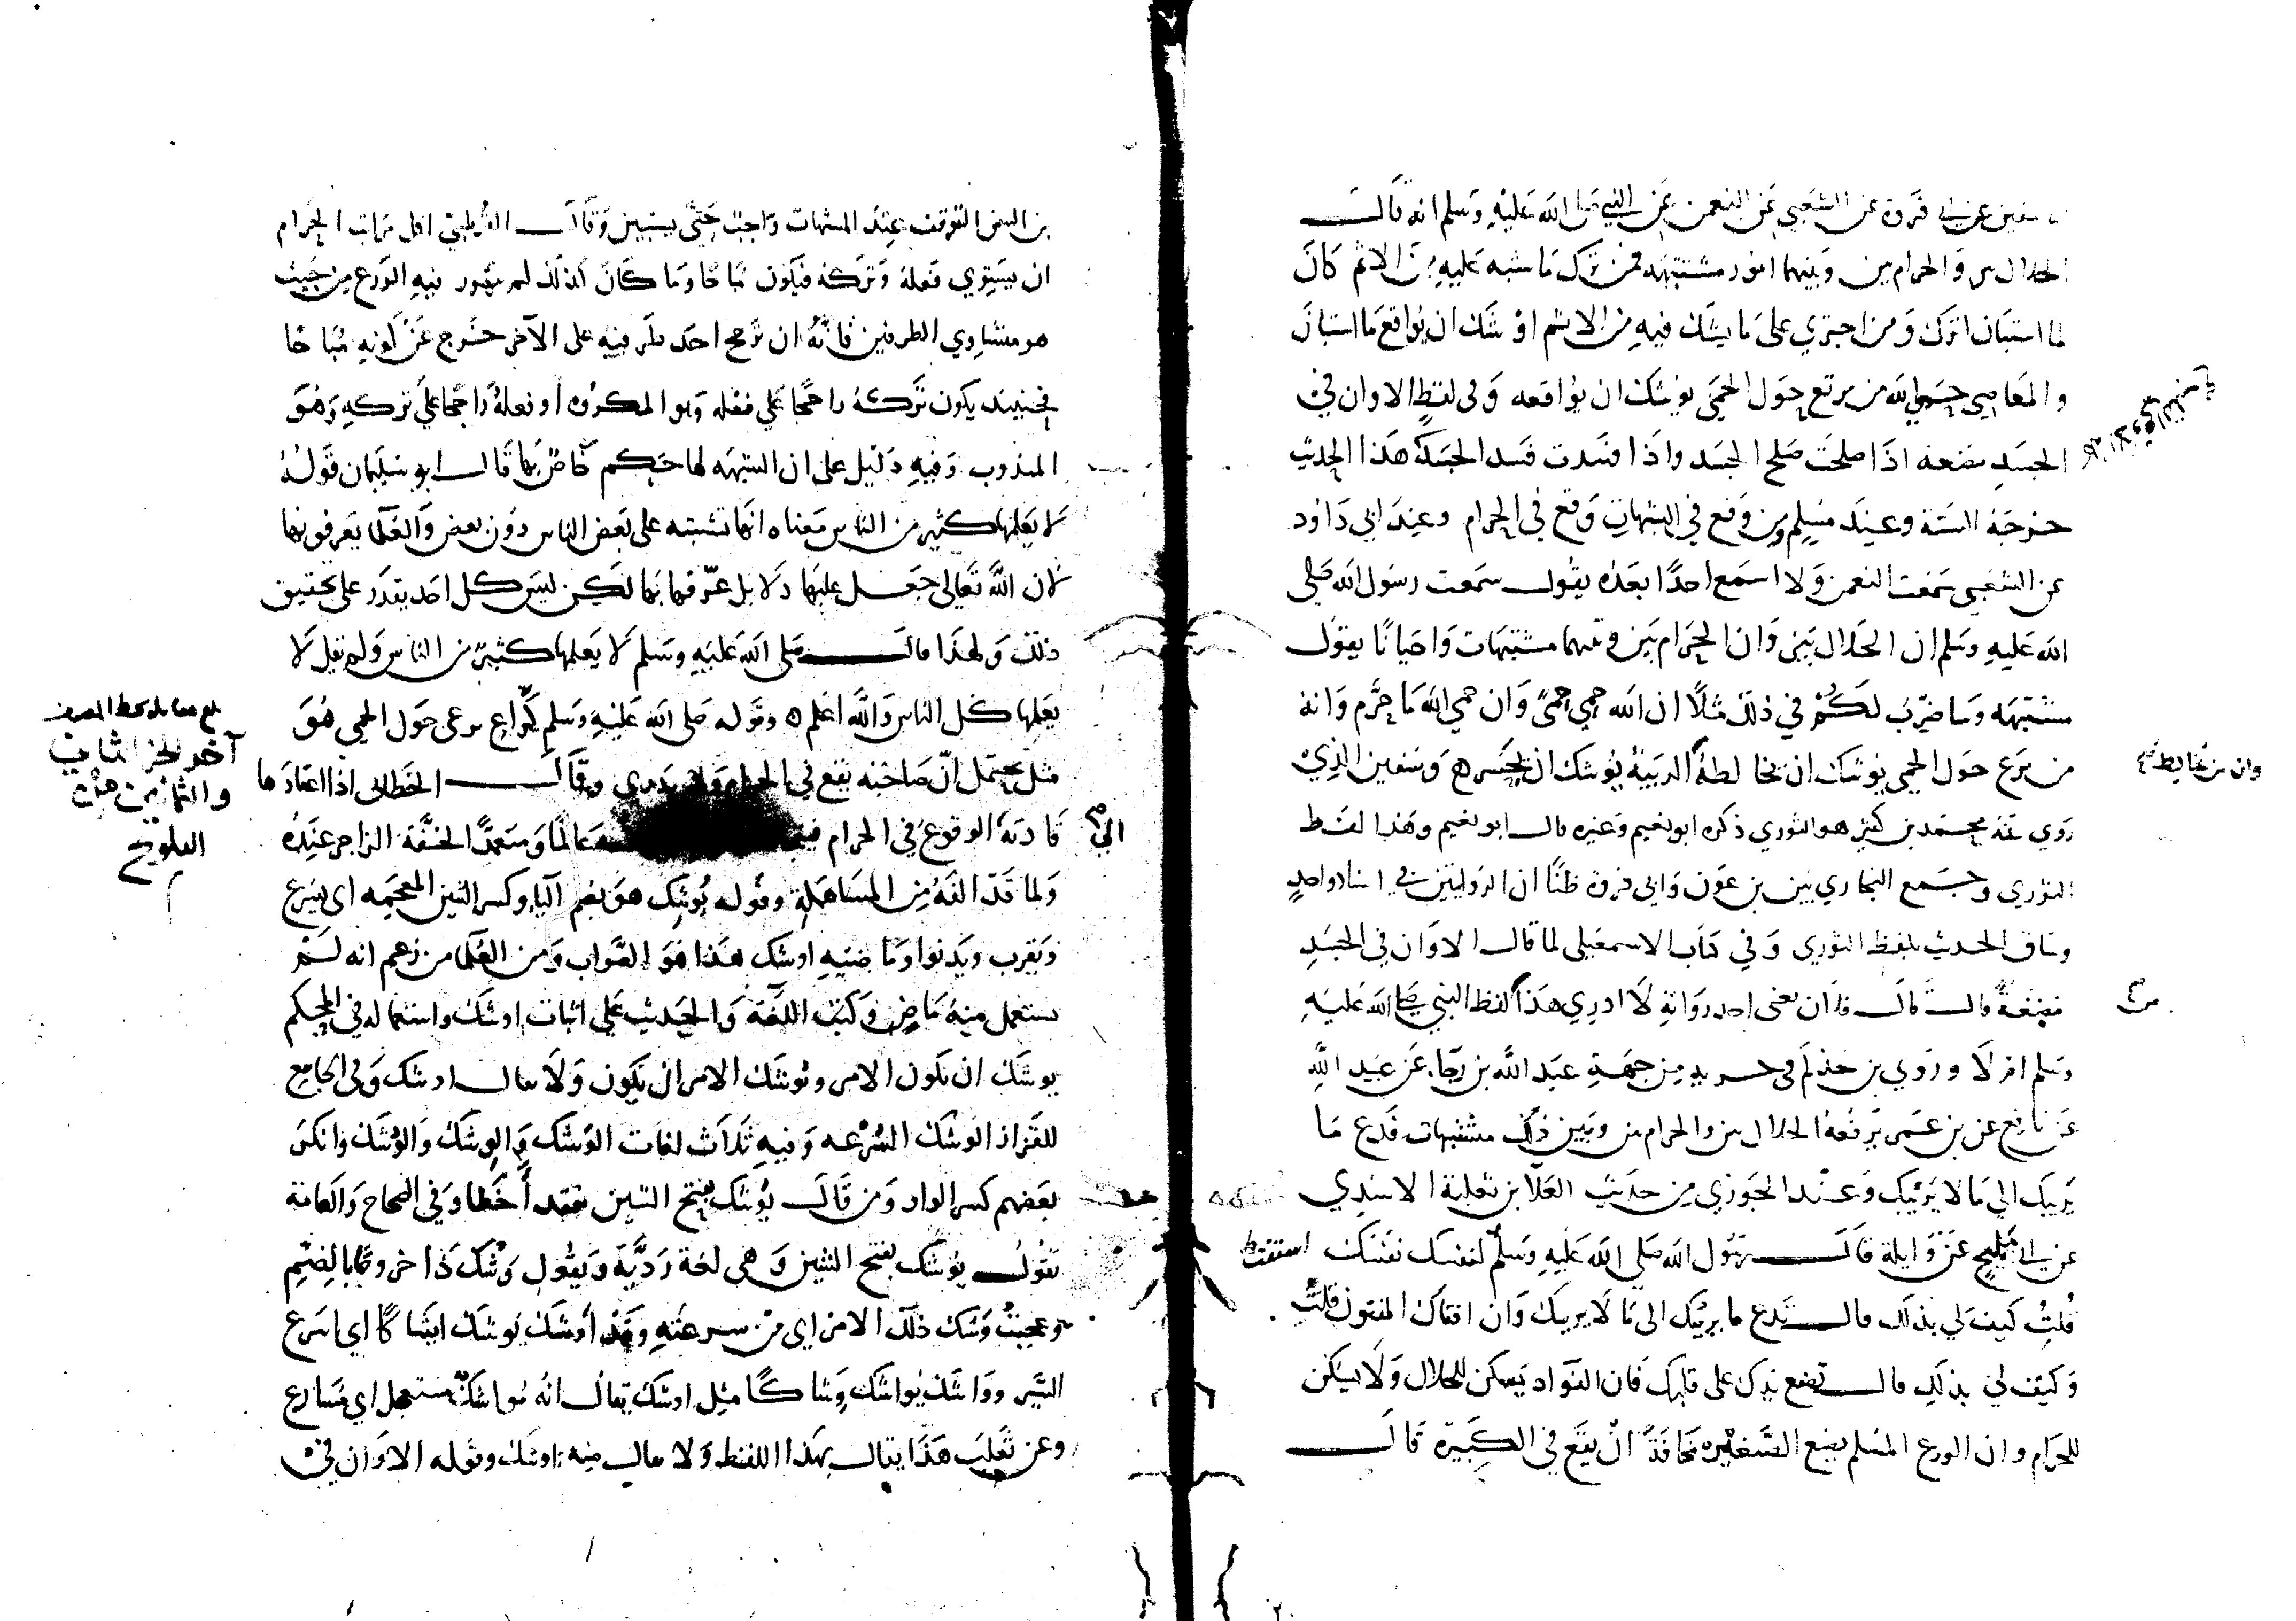 سفين عن ابي فروة عن الشعبي عن النعمن عن النبي صلى الله عليه وسلم انه قال
الحلال بين والحرام بين وبينهما امور مشتبهه فمن ترك ما شبه عليه من الاثم كان
لما استبان اترك ومن اجتري على ما يشك فيه من الاثم اوشك ان يواقع ما استبان
والمعاصي حمى الله من يرتع حول الحمى يوشك ان يواقعه وفي لفظ الا وان في
الجسد مضغه اذا صلحت صلح الجسد واذا فسدت فسد الجسد كله هذا الحديث
خرجه الستة وعند مسلم ومن وقع في الشبهات وقع في الحرام وعند ابي داود
عن الشعبي سمعت النعمن ولا اسمع احدا بعده يقول سمعت رسول الله صلى
الله عليه وسلم ان الحلال بين وان الحرام بين وبينهما مشتبهات واحيانا يقول
مشتبهه وساضرب لكم في ذلك مثلا ان الله حمى حمى وان حمى الله ما حرم وانه
من يرع حول الحمى يوشك ان يخالطه الريبة يوشك ان يجسر ه وسفين الذي
وان من يخالط
روي عنه محمد بن كثير هو الثوري ذكره ابو نعيم وغيره قال ابو نعيم وهذا لفظ
الثوري وجمع البخاري بين بن عون وابي فروة ظنا ان الروايتين في اسناد واحد
وساق الحديث بلفظ الثوري وفي كتاب الاسمعيلي لما قال الا وان في الجسد
مضغة قال قال فلا ان يعني احد رواته لا ادري هذا لفظ النبي صلى الله عليه
وسلم ام لا وروي بن حذلم في من جهة عبد الله بن رجا عن عبيد الله
عن نافع عن بن عمر يرفعه الحلال بين والحرام بين وبين ذلك مشتبهات فدع ما
يريبك الى ما لا يريبك وعند الجوزي من حديث العلا بن ثعلبة الاسدي
عن ابي مليح عن وايلة قال رسول الله صلى الله عليه وسلم لتفتك نفسك
استفت
قلت كيف لي بذلك قال تدع ما يريبك الى ما لا يريبك وان افتاك المفتون قلت
وكيف لي بذلك قال تضع يدك على قلبك فان الفواد يسكن للحلال ولا يسكن
للحرام وان الورع المسلم يضع الصغيره مخافة ان يقع في الكبيرة قال
بن التوقف عند المشبهات واجب حتى يستبين وقال القرطبي اقل مراتب الحرام
ان يستوي فعله وتركه فيكون مباحا وما كان كذلك لم يتصور فيه الورع من حيث
هو متساوي الطرفين فانه ان ترجح احد طرفيه على الآخر خرج عن كونه مباحا
فحينيذ يكون تركه راجحا على فعله وهو المكروه او فعله راجحا على تركه وهو
المندوب وفيه دليل على ان الشبهه لها حكم خاص بها قال ابو سليمان قوله
لا يعلمها كثير من الناس معناه انها تشتبه على بعض الناس دون بعض والعلما يعرفونها
لان الله تعالى جعل عليها دلايل عرفها بها لكن ليس كل احد يقدر على تحقيق
ذلك ولهذا قال صلى الله عليه وسلم لا يعلمها كثير من الناس ولم يقل لا
يعلمها كل الناس والله اعلم ه وقوله صلى الله عليه وسلم كراع يرعى حول الحمى هو
مثل يحتمل ان صاحبه يقع في الحرام ولا يدري وقال الخطابي اذا اعتاد ها
قادته الى الوقوع في الحرام عالما ومتعمدا لخفة الزاجر عنده
ولما قد الفه من المساهلة وقوله يوشك هو بضم اليا وكسر الشين المعجمه اي يسرع
ويقرب ويدنوا وماضيه اوشك هذا هو الصواب ومن العلما من زعم انه لم
يستعمل منه ماض وكتب اللغة والحديث على اثبات اوشك واستعماله في المحكم
يوشك ان يكون الامر ويوشك الامر ان يكون ولا يقال اوشك وفي الجامع
للقزاز الوشك السرعه وفيه ثلاث لغات الوشك والوشك والوشك وانكر
بعضهم كسر الواو ومن قال يوشك بفتح الشين فقد أخطا وفي الصحاح والعامة
تقول يوشك بفتح الشين وهي لغة ردية ويقول وشك ذا خروجا بالضم
وعجبت وشك ذلك الامر اي من سرعته وقد اوشك يوشك ايشاكا اي اسرع
السير وواشك يواشك وشاكا مثل اوشك يقال انه مواشك مستعجل اي مسارع
وعن ثعلب هذا يقال بهذا اللفظ ولا يقال منه اوشك وقوله الا وان في
بلغ مقابله بخط المصنف
آخر الجز الثاني
والثمانين من
التلويح